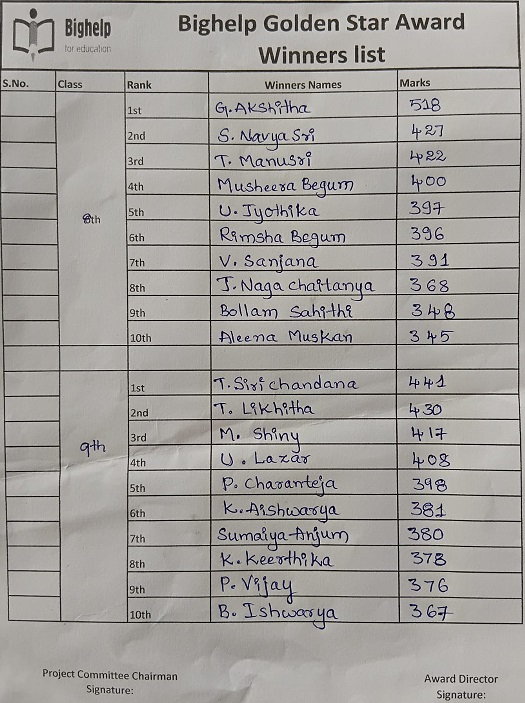 Bighelp
for education
Bighelp Golden Star Award
Winners list
S.No. Class Rank Winners Names Marks
1st G. Akshitha 518
2nd S. Navya Sri 427
3rd T. Manusri 422
4th Musheera Begum 400
8th 5th U. Jyothika 397
6th Rimsha Begum 396
7th V. Sanjana 391
8th J. Naga chaitanya 368
9th Bollam Sahithi 348
10th Aleena Muskan 345
1st T. Siri chandana 441
2nd T. Likhitha 430
9th 3rd M. Shiny 417
4th U. Lazar 408
5th P. Charanteja 398
6th K. Aishwarya 381
7th Sumaiya Anjum 380
8th K. Keerthika 378
9th P. Vijay 376
10th B. Ishwarya 367
Project Committee Chairman Award Director
Signature: Signature: